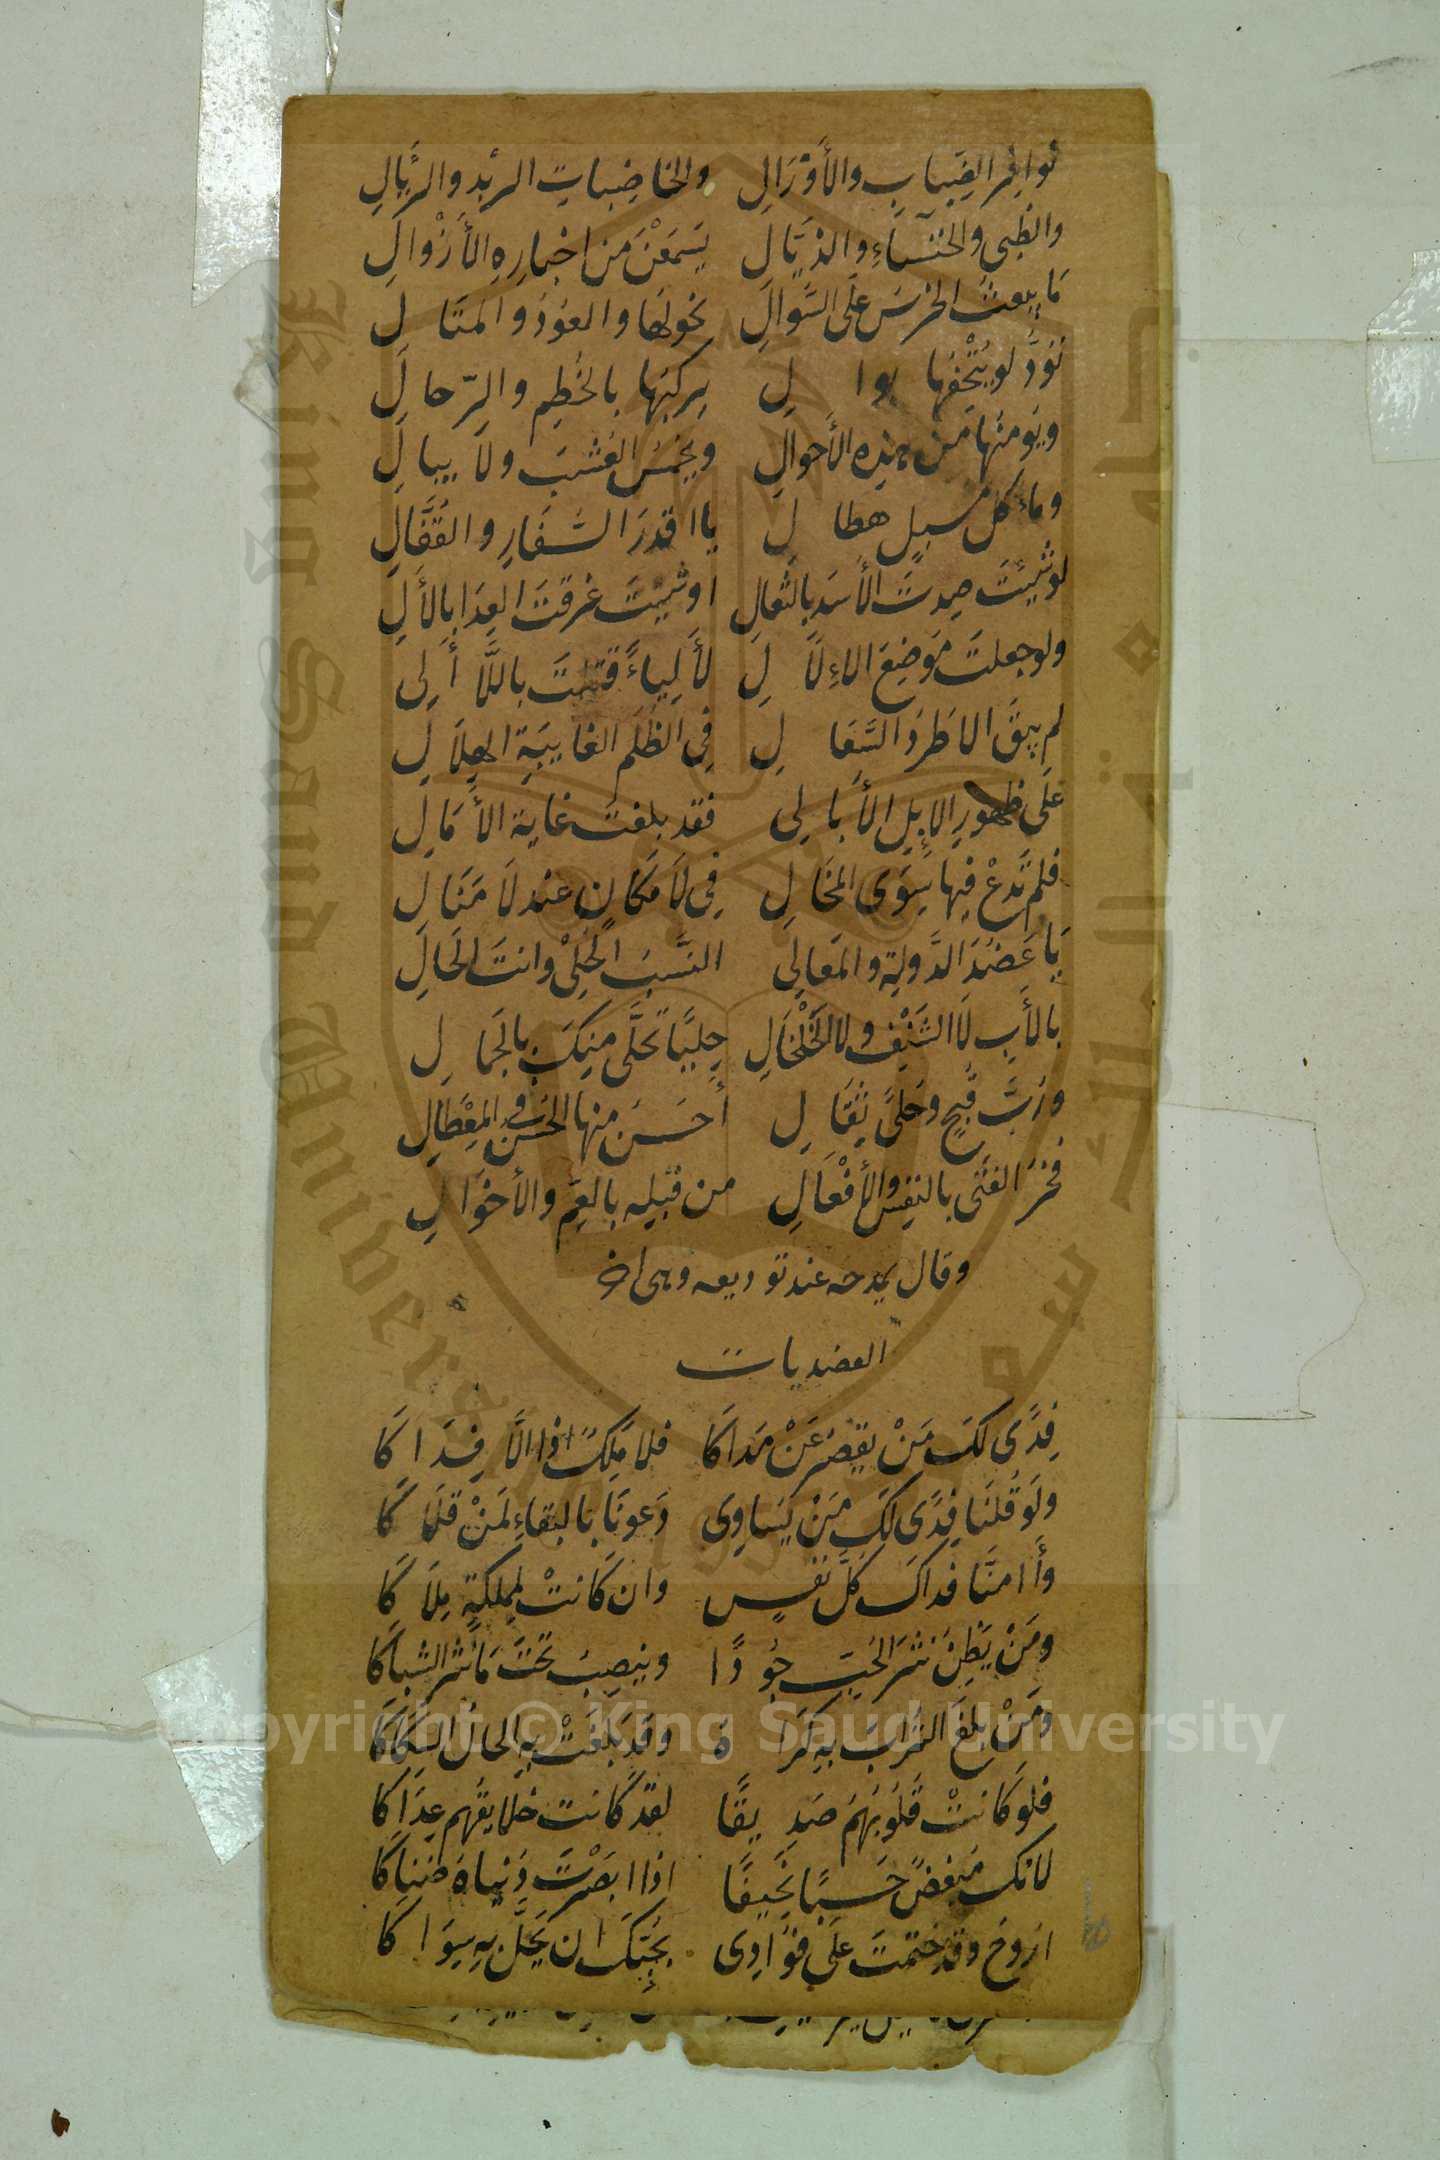 نَوافِرِ الضِّبابِ والأَوْرَالِ والخاضِباتِ الرُبْدِ والرِّيَالِ
والظبى والخنساءِ والذيَّالِ يَسْمَعْنَ من اخبارِهِ الأَزْوالِ
مَا يبعثُ الخُرْسَ عَلَى السُّوالِ فحولهَا والعُوذُ والمتَالِ
تَوَدُّ لو يُتْحِفُها بوالِ يركبُها بالخُطِمِ والرّحالِ
ويُومنُها من هذِه الأَحوالِ ويخمسُ العُشْبَ ولا يبالِ
وماءَ كلِّ مسبلٍ هطالِ يا اقدرَ السُّفَّارِ والقُفَّالِ
لو شِئتَ صِدتَ الأسَدَ بالثعالِ اوشِئتَ غرقتَ العِدَا بالأَلِ
ولو جعلتَ مَوضِعَ الاءِلَالِ لأَلِياءً قتلتَ باللَّأَلِى
لم يبقَ الا طَرَدُ السَّعَالِ فِى الظُلَمِ الغايبَةِ الهِلَالِ
عَلَى ظهورِ الإِبِلِ الأُبالِى فقد بلغتَ غاية الأَمَالِ
فلم تَدعْ فيها سِوَى المحَالِ فِى لَا مَكَانٍ عند لَا مَنَالِ
يَا عَضُدَ الدَّولةِ والمَعالِى النَّسَبُ الحَلْىُ وانتَ الحَالِ
بالأَبِ لَا الشَنْفِ ولا الخَلْخَالِ حِليًا تحَلَّى مِنكَ بالجَمالِ
ورُبَّ قُبحٍ وحُلىً ثِقَالِ أَحسَنُ منها الحُسنُ فى المِعْطَالِ
فَخْرُ الفَتَى بالنفِسِ والأَفْعَالِ من قبْلِه بالعَمِّ والأخوَالِ
وقال يمدحه عند توديعه وهى اخر
العضديات
فِدًى لكَ مَنْ يقصّرُ عَنْ مَدَاكَا فلا مَلِكٌ اذا الَّا فِدَاكَا
ولَو قُلنَا فِدًى لكَ مَنْ يُساوِى دَعونَا بالبقاءِ لمَنْ قلَاكَا
وأَامنَّا فداكَ كلَّ نفسٍ وان كَانتْ لمملكةٍ مِلَاكَا
ومَنْ يَظِنُّ نَثرَ الحُبِّ جُودًا وينصِبُ تَحتَ مَانثر الشِباكَا
ومَنْ بلغَ الترابَ بهِ كَرَاهُ وقد بَلغَتْ بهِ الحالُ السُكَاكَا
فلو كَانتْ قُلوبُهُمُ صَدِيقًا لقد كَانت خلايقُهم عِدَاكَا
لانكَ مُبغضٌ حَسَبًا نَحِيفًا اذا ابصَرْتَ دُنياهُ ضَنَاكَا
اروحُ وقد ختمتَ عَلَى فؤَادِى بحُبِّكَ ان يَحُلَّ بهِ سِوَاكَا